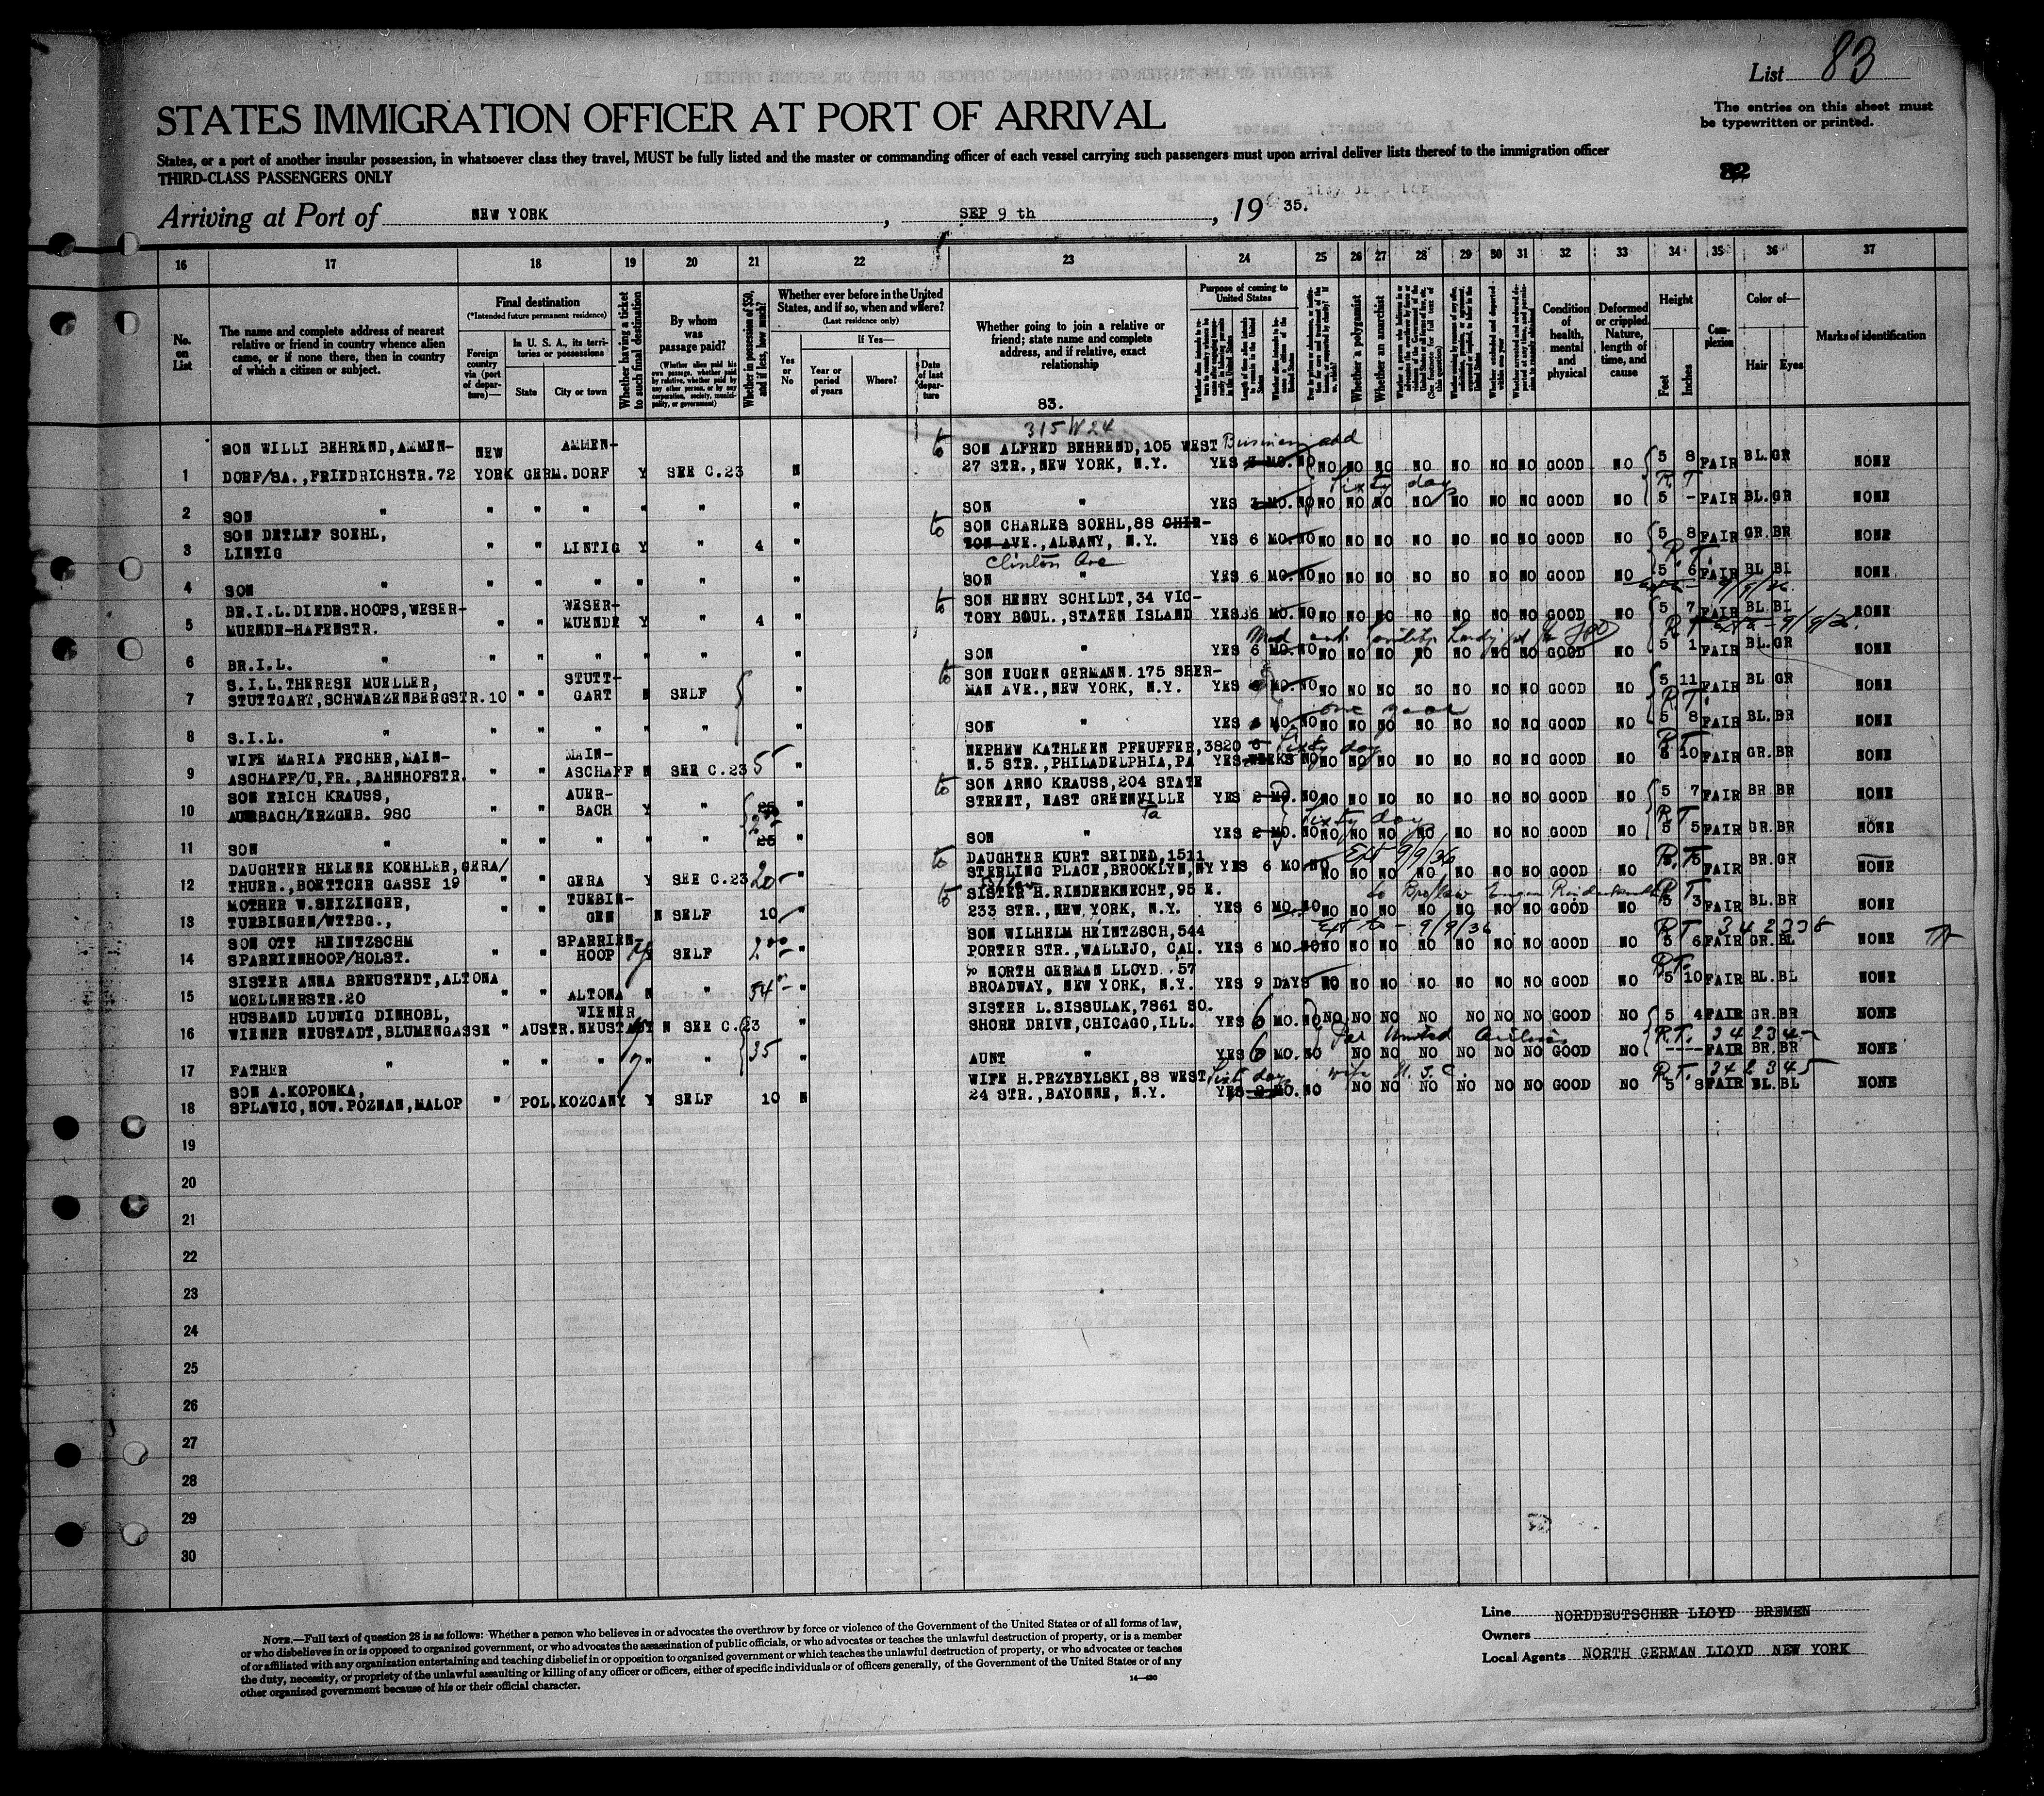 List 83
STATES IMMIGRATION OFFICER AT PORT OF ARRIVAL
The entries on this sheet must
be typewritten or printed.
States, or a port of another insular possession, in whatsoever class they travel, MUST be fully listed and the master or commanding officer of each vessel carrying such passengers must upon arrival deliver lists thereof to the immigration officer
THIRD-CLASS PASSENGERS ONLY
82
Arriving at Port of NEW YORK, SEP 9 th, 19 35.
16 17 18 19 20 21 22 23 24 25 26 27 28 29 30 31 32 33 34 35 36 37
No. on List
The name and complete address of nearest relative or friend in country whence alien came, or if none there, then in country of which a citizen or subject.
Final destination
(*Intended future permanent residence)
Foreign country via (port of departure)—
In U. S. A., its territories or possessions
State
City or town
Whether having a ticket to such final destination
By whom was passage paid?
(Whether alien paid his own passage, whether paid by relative, whether paid by any other person, or by any corporation, society, municipality, or government)
Whether in possession of $50, and if less, how much?
Whether ever before in the United States, and if so, when and where?
(Last residence only)
Yes or No
If Yes—
Year or period of years
Where?
Date of last departure
Whether going to join a relative or friend; state name and complete address, and if relative, exact relationship
83.
Purpose of coming to United States
Whether a polygamist
Whether an anarchist
Condition of health, mental and physical
Deformed or crippled. Nature, length of time, and cause
Height
Feet
Inches
Complexion
Color of—
Hair
Eyes
Marks of identification
315 W 24
SON WILLI BEHREND, AMMEN- NEW AMMEN- to SON ALFRED BEHREND, 105 WEST Business add
1 DORF/SA., FRIEDRICHSTR. 72 YORK GERM. DORF Y SEE C.23 N 27 STR., NEW YORK, N.Y. YES 3 MO. NO NO NO NO NO NO NO NO GOOD NO 5 8 FAIR BL. GR NONE
sixty days R.T
2 SON " " " " " " " SON " YES 3 MO. NO NO NO NO NO NO NO NO GOOD NO 5 - FAIR BL. GR NONE
SON DETLEF SOEHL, to SON CHARLES SOEHL, 88 CHIR-
3 LINTIG " " LINTIG Y " 4 " TON AVE., ALBANY, N.Y. YES 6 MO. NO NO NO NO NO NO NO NO GOOD NO 5 8 FAIR GR. BR NONE
Clinton Ave R.T.
4 SON " " " " " " " SON " YES 6 MO. NO NO NO NO NO NO NO NO GOOD NO 5 6 FAIR BL BL NONE
BR.I.L. DIEDR. HOOPS, WESER- WESER- to SON HENRY SCHILDT, 34 VIC-
5 MUENDE-HAFENSTR. " " MUENDE Y " 4 " TORY BOUL., STATEN ISLAND YES 6 MO. NO NO NO NO NO NO NO NO GOOD NO 5 7 FAIR BL. BL NONE
R.T 9/9/36.
6 BR.I.L. " " " " " " " SON " YES 6 MO. NO NO NO NO NO NO NO NO GOOD NO 5 1 FAIR BL. GR NONE
S.I.L. THERESE MUELLER, STUTT- to SON EUGEN GERMANN. 175 SHER-
7 STUTTGART, SCHWARZENBERGSTR. 10 " " GART N SELF " MAN AVE., NEW YORK, N.Y. YES MO. NO NO NO NO NO NO NO NO GOOD NO 5 11 FAIR BL GR NONE
one year R.T.
8 S.I.L. " " " " " " " SON " YES MO. NO NO NO NO NO NO NO NO GOOD NO 5 8 FAIR BL. BR NONE
WIFE MARIA FECHER, MAIN- MAIN- NEPHEW KATHLEEN PFEUFFER, 3820 6 sixty days R.T.
9 ASCHAFF/U, FR., BAHNHOFSTR. " " ASCHAFF N SEE C.23 5 " N.5 STR., PHILADELPHIA, PA YES WEEKS NO NO NO NO NO NO NO NO GOOD NO 5 10 FAIR GR. BR NONE
SON ERICH KRAUSS, AUER- to SON ARNO KRAUSS, 204 STATE
10 AUERBACH/ERZGEB. 98C " " BACH Y " 25 " STREET, EAST GREENVILLE YES 2 MO. NO NO NO NO NO NO NO NO GOOD NO 5 7 FAIR BR. BR NONE
Pa sixty days R.T.
11 SON " " " " " " 25 " SON " YES 2 MO. NO NO NO NO NO NO NO NO GOOD NO 5 5 FAIR GR. BR NONE
DAUGHTER HELENE KOEHLER, GERA/ to DAUGHTER KURT SEIDEL, 1511 Ext 9/9/36 R.T.
12 THUER., BOETTCER GASSE 19 " " GERA Y SEE C.23 20 " STERLING PLACE, BROOKLYN, NY YES 6 MO. NO NO NO NO NO NO NO NO GOOD NO 5 5 FAIR BR. GR NONE
MOTHER W. SEIZINGER, TUEBIN- to SISTER H. RINDERKNECHT, 95 E. to Bro/law Eugen Rinderknecht R.T.
13 TUEBINGEN/WTTBG., " " GEN N SELF 10 " 233 STR., NEW YORK, N.Y. YES 6 MO. NO NO NO NO NO NO NO NO GOOD NO 5 3 FAIR BL. BR NONE
SON OTT HEINTZSCHM SPARRIEN- SON WILHELM HEINTZSCH, 544 Ext to - 9/9/36 R.T. 342338
14 SPARRIENHOOP/HOLST. " " HOOP Y SELF 200 " PORTER STR., WALLEJO, CAL. YES 6 MO. NO NO NO NO NO NO NO NO GOOD NO 5 6 FAIR GR. BL NONE
SISTER ANNA BREUSTEDT, ALTONA % NORTH GERMAN LLOYD. 57 R.T.
15 MOELLNERSTR. 20 " " ALTONA N " 54 " BROADWAY, NEW YORK, N.Y. YES 9 DAYS NO NO NO NO NO NO NO GOOD NO 5 10 FAIR BL. BL NONE
HUSBAND LUDWIG DINHOBL, WIENER SISTER L. SISSULAK, 7861 SO.
16 WIENER NEUSTADT, BLUMENGASSE " AUSTR. NEUSTADT N SEE C.23 " SHORE DRIVE, CHICAGO, ILL. YES 6 MO. NO NO NO NO NO NO NO NO GOOD NO 5 4 FAIR GR. BR NONE
35 Per United Airlines R.T. 342345
17 FATHER " " " " " " " AUNT " YES 6 MO. NO NO NO NO NO NO NO GOOD NO ---- FAIR BR. BR NONE
SON A. KOPONKA, WIFE H. PRZYBYLSKI, 88 WEST sixt days wife U.S.C. R.T. 342345
18 SPLAWIC, NOW. POZNAN, MALOP " POL. KOZCANY Y SELF 10 N 24 STR., BAYONNE, N.Y. YES MO. NO NO NO NO NO NO NO GOOD NO 5 8 FAIR BL. BL NONE
19
20
21
22
23
24
25
26
27
28
29
30
NOTE.—Full text of question 28 is as follows: Whether a person who believes in or advocates the overthrow by force or violence of the Government of the United States or of all forms of law,
or who disbelieves in or is opposed to organized government, or who advocates the assassination of public officials, or who advocates or teaches the unlawful destruction of property, or is a member
of or affiliated with any organization entertaining and teaching disbelief in or opposition to organized government or which teaches the unlawful destruction of property, or who advocates or teaches
the duty, necessity, or propriety of the unlawful assaulting or killing of any officer or officers, either of specific individuals or of officers generally, of the Government of the United States or of any
other organized government because of his or their official character.
14—420
Line NORDDEUTSCHER LLOYD BREMEN
Owners
Local Agents NORTH GERMAN LLOYD NEW YORK